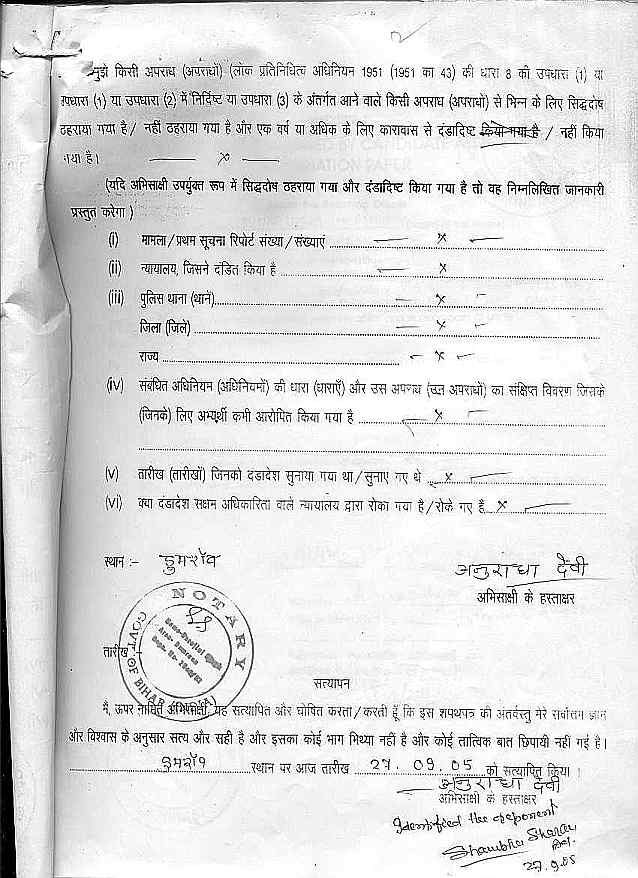 2
मुझे किसी अपराध (अपराधों) (लोक प्रतिनिधित्व अधिनियम 1951 (1951 का 43) की धारा 8 की उपधारा (1) या
उपधारा (1) या उपधारा (2) में निर्दिष्ट या उपधारा (3) के अंतर्गत आने वाले किसी अपराध (अपराधों) से भिन्न के लिए सिद्धदोष
ठहराया गया है / नहीं ठहराया गया है और एक वर्ष या अधिक के लिए कारावास से दंडादिष्ट किया गया है / नहीं किया
गया है। — x —
(यदि अभिसाक्षी उपर्युक्त रूप में सिद्धदोष ठहराया गया और दंडादिष्ट किया गया है तो वह निम्नलिखित जानकारी
प्रस्तुत करेगा )
(i) मामला / प्रथम सूचना रिपोर्ट संख्या / संख्याएं — x —
(ii) न्यायालय, जिसने दंडित किया है — x
(iii) पुलिस थाना (थाने) — x —
जिला (जिले) — x —
राज्य — x —
(iv) संबंधित अधिनियम (अधिनियमों) की धारा (धाराएँ) और उस अपराध (उन अपराधों) का संक्षिप्त विवरण जिसके
(जिनके) लिए अभ्यर्थी कभी आरोपित किया गया है — x —
(v) तारीख (तारीखों) जिनको दंडादेश सुनाया गया था / सुनाए गए थे x —
(vi) क्या दंडादेश सक्षम अधिकारिता वाले न्यायालय द्वारा रोका गया है / रोके गए हैं x —
स्थान :- डुमराँव
अनुराधा देवी
अभिसाक्षी के हस्ताक्षर
NOTARY
GOVT OF BIHAR
तारीख :-
सत्यापन
मैं, ऊपर नामित अभिसाक्षी, यह सत्यापित और घोषित करता / करती हूँ कि इस शपथपत्र की अंतर्वस्तु मेरे सर्वोत्तम ज्ञान
और विश्वास के अनुसार सत्य और सही है और इसका कोई भाग मिथ्या नहीं है और कोई तात्विक बात छिपायी नहीं गई है।
डुमराँव स्थान पर आज तारीख 27. 09. 05 को सत्यापित किया।
अनुराधा देवी
अभिसाक्षी के हस्ताक्षर
Identified the deponent
Shambhu Sharan
27.9.05